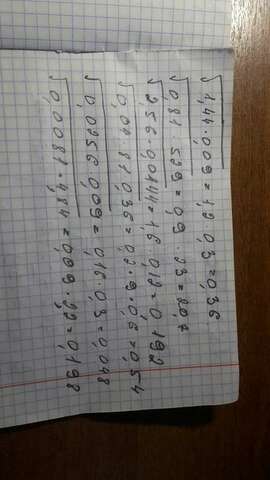 √1,44·0,09 = 1,2·0,3 = 0,36
√0,81·529 = 0,9·23 = 20,7
√2,56·0,0144 = 1,6·0,12 = 0,192
√0,04·81·0,36 = 0,2·9·0,6 = 0,54
√0,0256·0,09 = 0,16·0,3 = 0,048
√0,0081·484 = 0,09·22 = 0,198